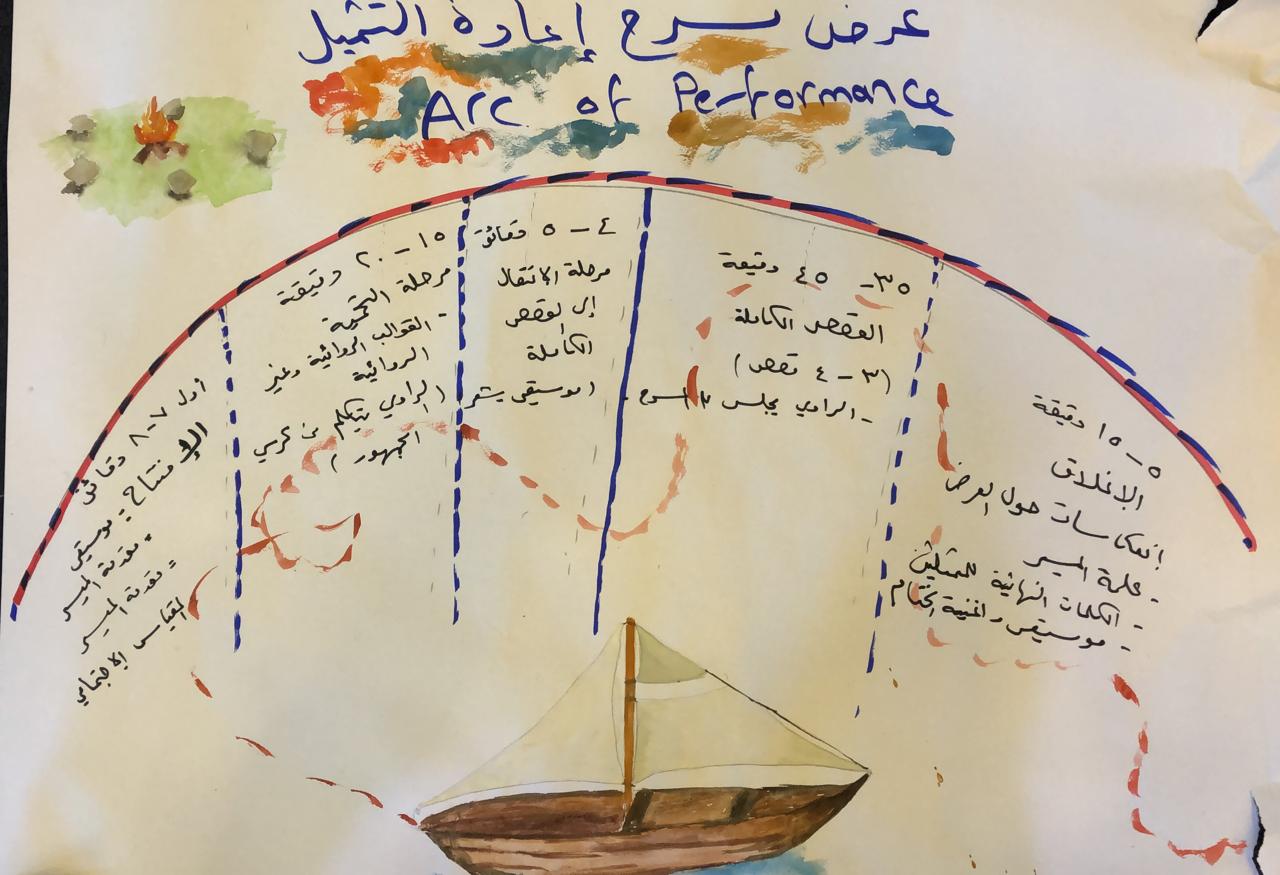 عرض مسرح إعادة التمثيل
Arc of Performance
أول ٧-٨ دقائق
الافتتاح: موسيقى
- مقدمة الميسر
- مقدمة الميسر
المقياس الاجتماعي
١٥ - ٢٠ دقيقة
مرحلة التحمية
- القوالب الروائية وغير
الروائية
(الراوي يتكلم من كرسي
الجمهور)
٤ - ٥ دقائق
مرحلة الانتقال
إلى القصص
الكاملة
(موسيقى
٣٥ - ٤٥ دقيقة
القصص الكاملة
(٣ - ٤ قصص)
- الراوي يجلس المسرح
٥ - ١٥ دقيقة
الإغلاق
انعكاسات حول العرض
- كلمة الميسر
- الكلمات النهائية للممثلين
- موسيقى واغنية الختام